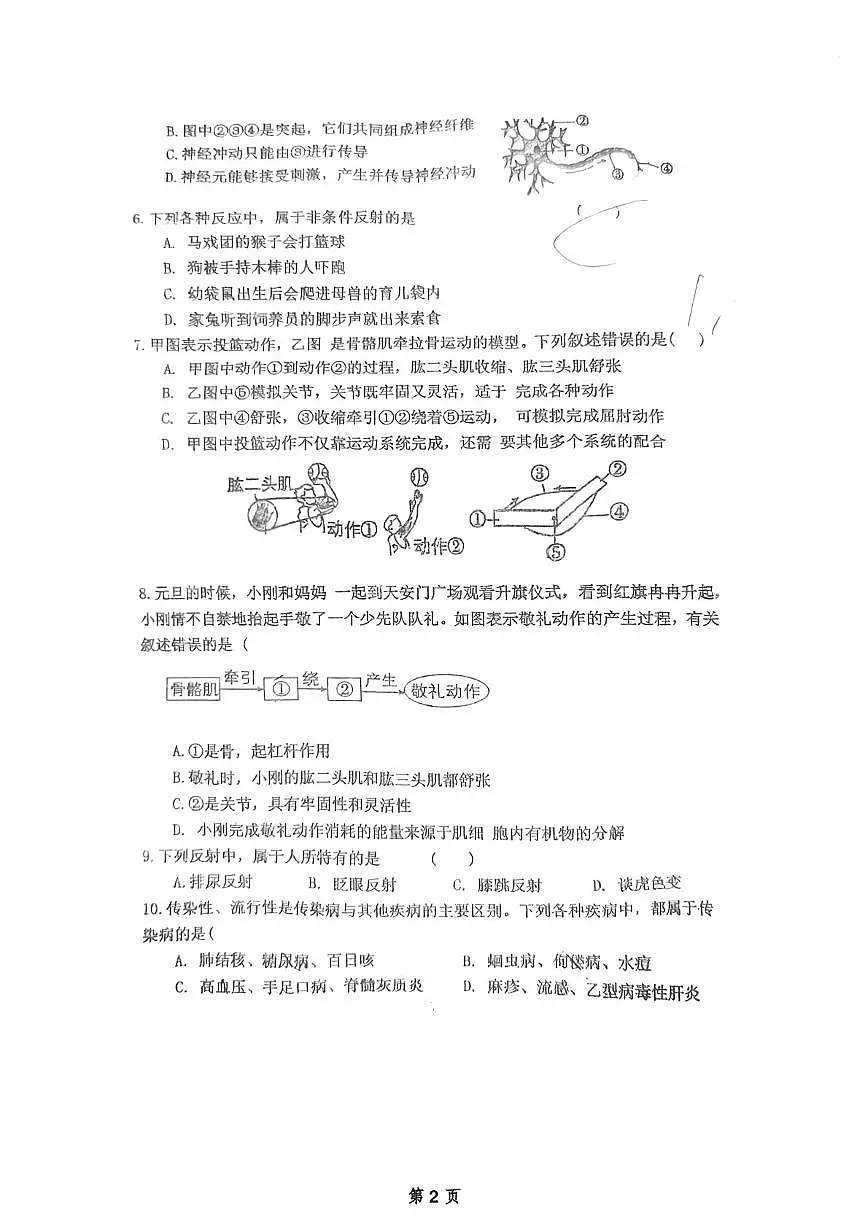 B. 图中②③④是突起，它们共同组成神经纤维
C. 神经冲动只能由③进行传导
D. 神经元能够接受刺激，产生并传导神经冲动
②
①
③
④
6. 下列各种反应中，属于非条件反射的是 ( )
A. 马戏团的猴子会打篮球
B. 狗被手持木棒的人吓跑
C. 幼袋鼠出生后会爬进母兽的育儿袋内
D. 家兔听到饲养员的脚步声就出来索食
7. 甲图表示投篮动作，乙图 是骨骼肌牵拉骨运动的模型。下列叙述错误的是( )
A. 甲图中动作①到动作②的过程，肱二头肌收缩、肱三头肌舒张
B. 乙图中⑤模拟关节，关节既牢固又灵活，适于 完成各种动作
C. 乙图中④舒张，③收缩牵引①②绕着⑤运动， 可模拟完成屈肘动作
D. 甲图中投篮动作不仅靠运动系统完成，还需 要其他多个系统的配合
肱二头肌
动作①
动作②
③
②
①
④
⑤
8. 元旦的时候，小刚和妈妈 一起到天安门广场观看升旗仪式，看到红旗冉冉升起，
小刚情不自禁地抬起手敬了一个少先队队礼。如图表示敬礼动作的产生过程，有关
叙述错误的是 (
骨骼肌 牵引 ① 绕 ② 产生 敬礼动作
A. ①是骨，起杠杆作用
B. 敬礼时，小刚的肱二头肌和肱三头肌都舒张
C. ②是关节，具有牢固性和灵活性
D. 小刚完成敬礼动作消耗的能量来源于肌细 胞内有机物的分解
9. 下列反射中，属于人所特有的是 ( )
A. 排尿反射 B. 眨眼反射 C. 膝跳反射 D. 谈虎色变
10. 传染性、流行性是传染病与其他疾病的主要区别。下列各种疾病中，都属于传
染病的是(
A. 肺结核、糖尿病、百日咳 B. 蛔虫病、佝偻病、水痘
C. 高血压、手足口病、脊髓灰质炎 D. 麻疹、流感、乙型病毒性肝炎
第 2 页